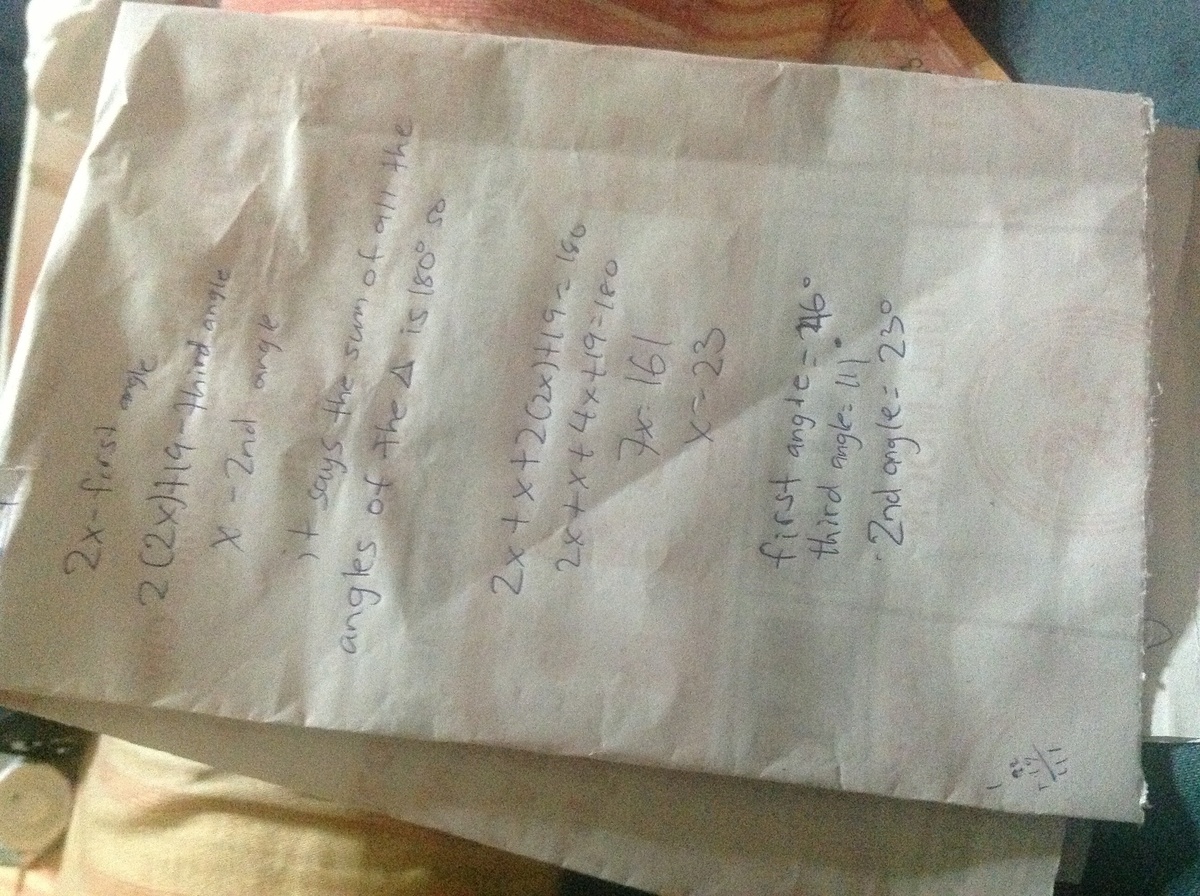 2x-first angle
2(2x)+19-third angle
x-2nd angle
it says the sum of all the
angles of the Δ is 180° so
2x+x+2(2x)+19=180
2x+x+4x+19=180
7x=161
x=23
first angle=46°
third angle=111°
2nd angle=23°
1
92
+19
111